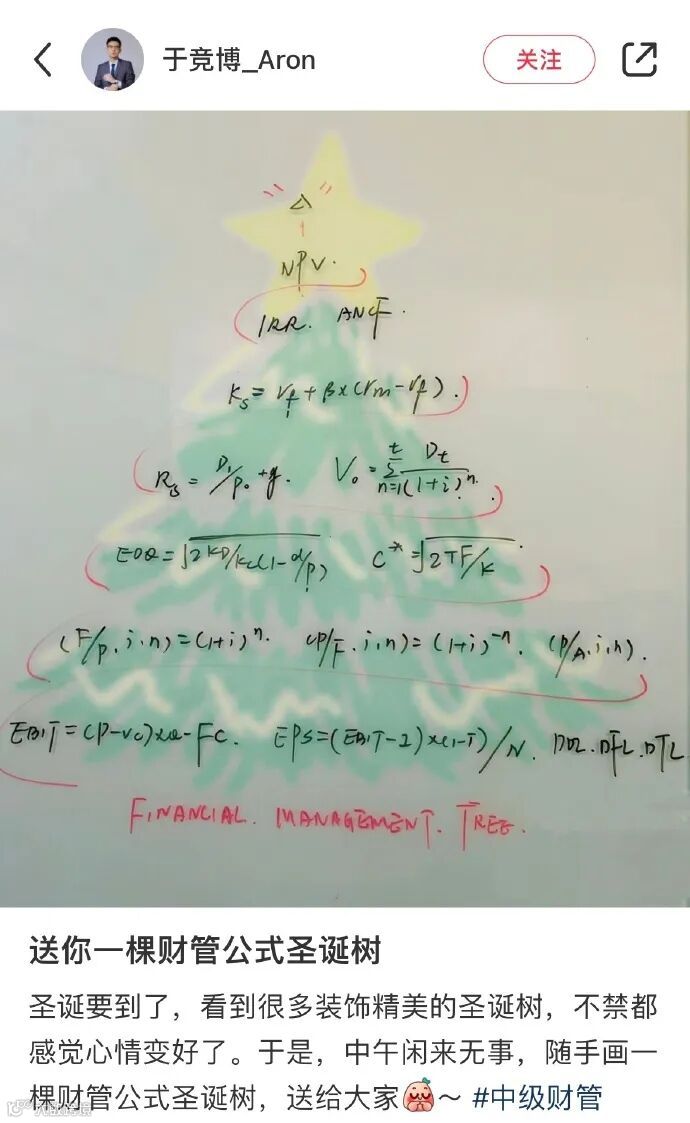 于竞博_Aron
关注
△
NPV.
IRR. ANCF.
Ks = rf + β×(rm-rf).
Rs = D1/P0 + g. V0 = t∑n=1 Dt/(1+i)^n.
EOQ = √2KD/Kc(1-d/p) C* = √2TF/K.
(F/P.i.n) = (1+i)^n. (P/F.i.n) = (1+i)^-n. (P/A.i.n).
EBIT = (P-Vc)×Q-FC. EPS = (EBIT-I)×(1-T)/N. DOL.DFL.DTL
FINANCIAL. MANAGEMENT. TREE.
送你一棵财管公式圣诞树
圣诞要到了，看到很多装饰精美的圣诞树，不禁都
感觉心情变好了。于是，中午闲来无事，随手画一
棵财管公式圣诞树，送给大家～ #中级财管